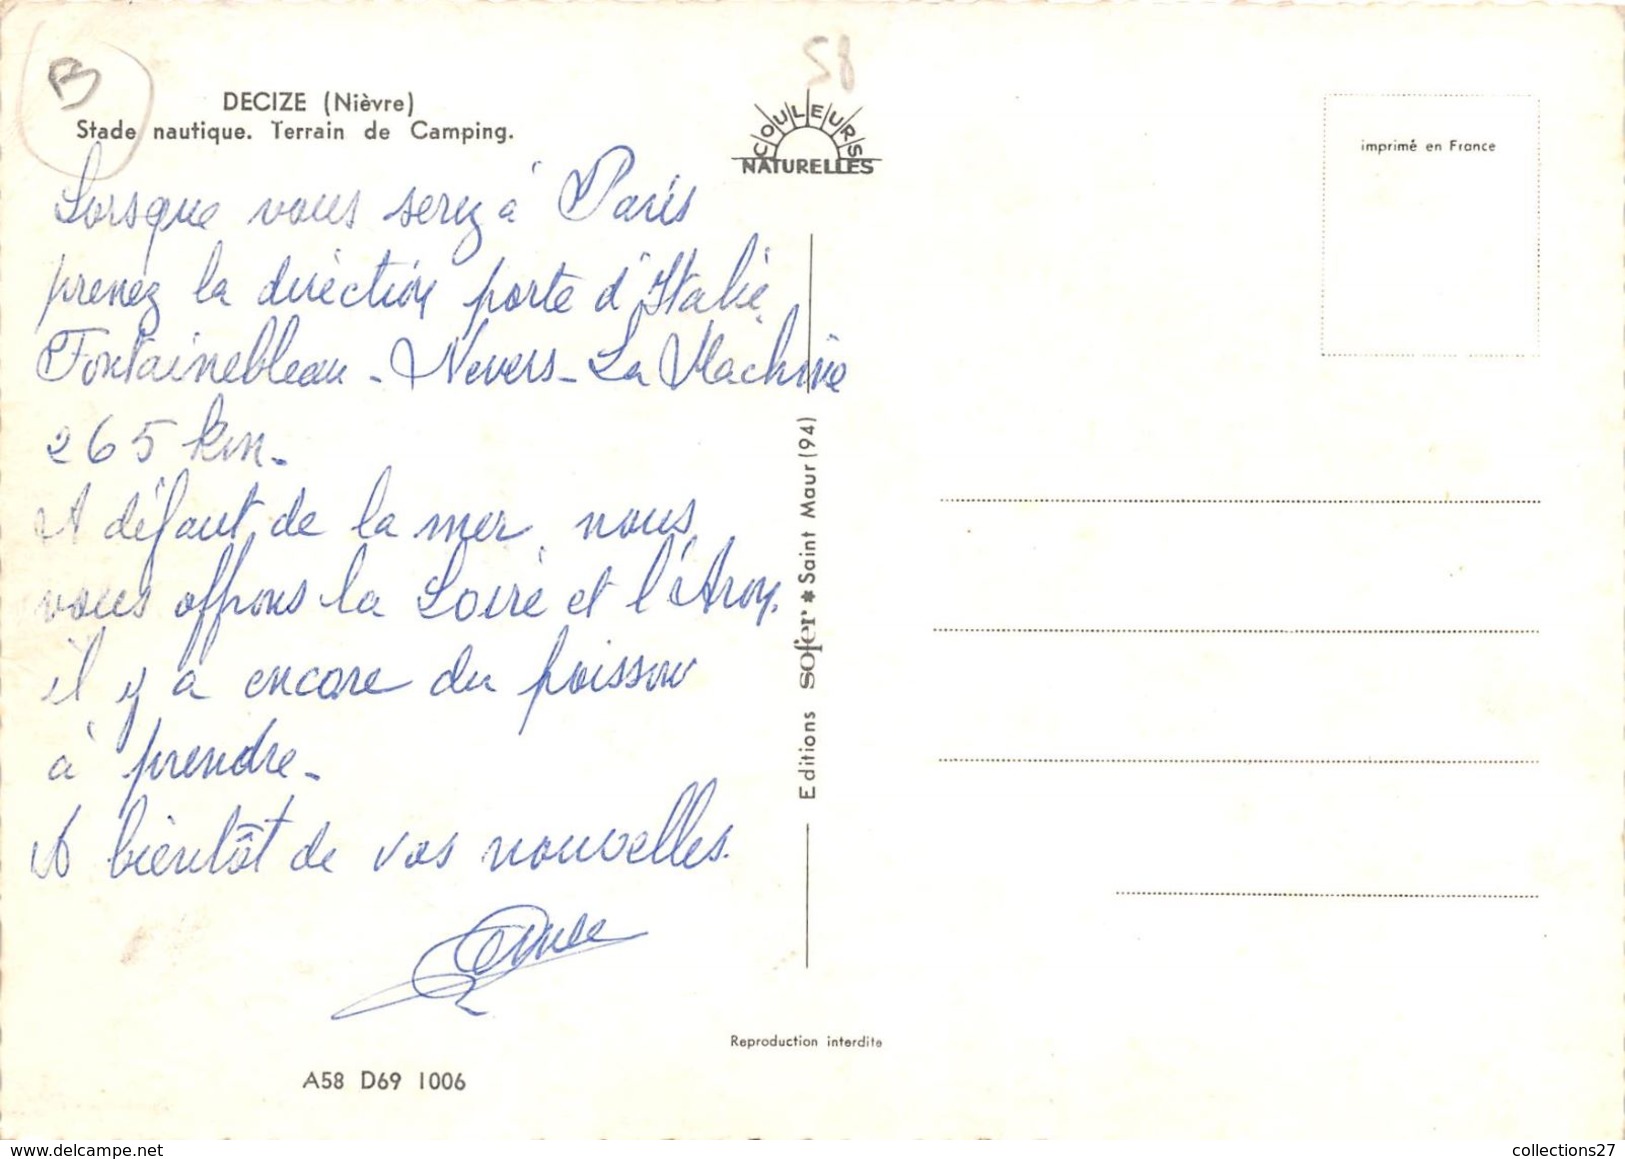 B
58
DECIZE (Nièvre)
Stade nautique. Terrain de Camping.
COULEURS
NATURELLES
imprimé en France
Lorsque vous serez à Paris
prenez la direction porte d'Italie
Fontainebleau - Nevers - La Machine
265 km -
A défaut de la mer, nous
vous offrons la Loire et l'Aron.
il y a encore du poisson
à prendre -
A bientôt de vos nouvelles.
Editions sofer * Saint Maur (94)
Reproduction interdite
A58 D69 1006
collections27